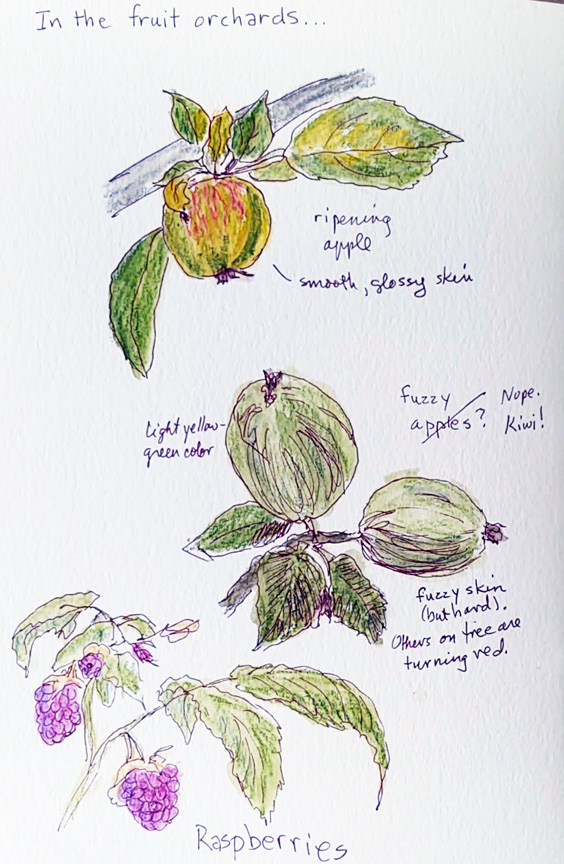 In the fruit orchards...
ripening
apple
smooth, glossy skin
light yellow-
green color
fuzzy
apples?
Nope.
Kiwi!
fuzzy skin
(but hard).
Others on tree are
turning red.
Raspberries